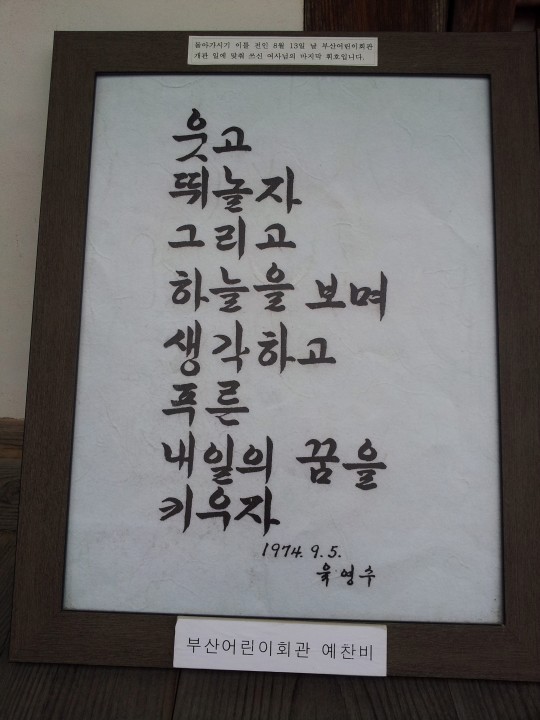 돌아가시기 이틀 전인 8월 13일 날 부산어린이회관
개관 일에 맞춰 쓰신 여사님의 마지막 휘호입니다.
웃고
뛰놀자
그리고
하늘을 보며
생각하고
푸른
내일의 꿈을
키우자
1974. 9. 5.
육영수
부산어린이회관 예찬비